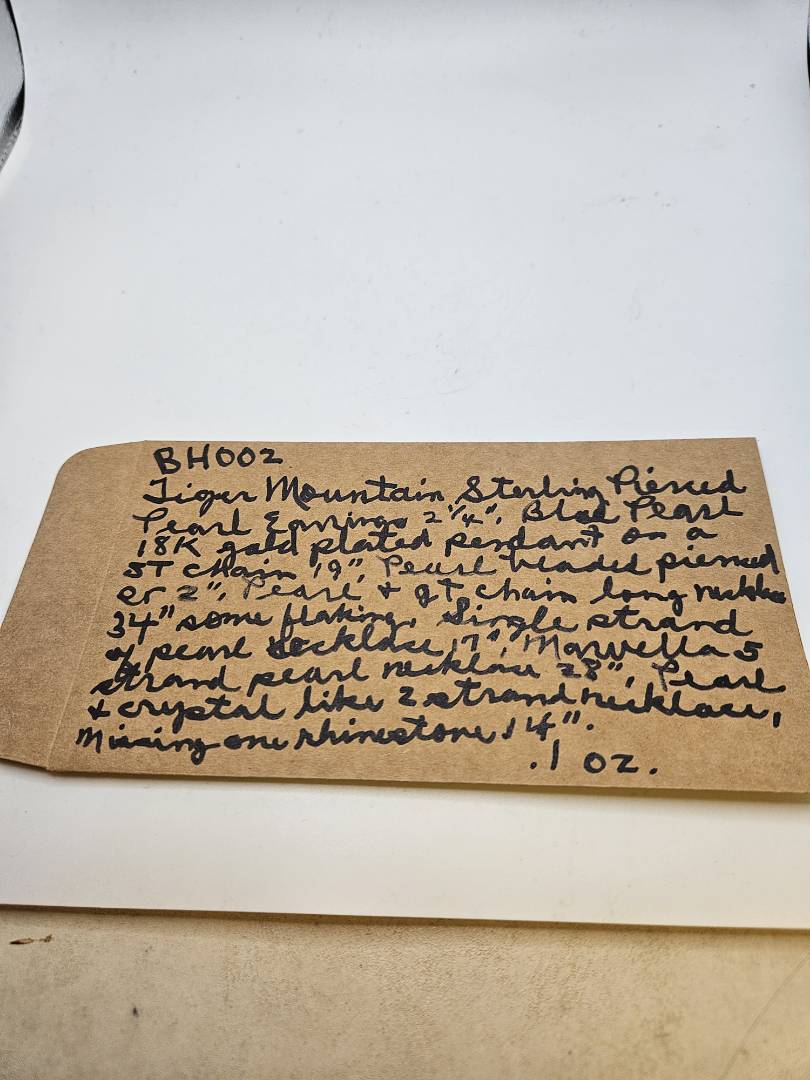 BH002
Tiger Mountain Sterling Pierced
Pearl Earrings 2 1/4", Blac Pearl
18K gold plated pendant on a
ST chain 19", Pearl beaded pierced
er 2", Pearl + gT chain long necklace
34" some flaking, Single strand
of pearl necklace 17", Marvella 5
strand pearl necklace 28", Pearl
+ crystal like 2 strand necklace,
missing one rhinestone 14".
.1 oz.